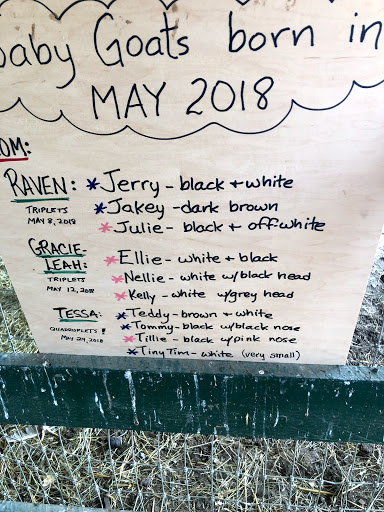 baby Goats born in
MAY 2018
OM:
RAVEN: *Jerry - black + white
TRIPLETS *Jakey - dark brown
MAY 8, 2018 *Julie - black + off-white
GRACIE- *Ellie - white + black
LEAH: *Nellie - white w/black head
TRIPLETS
MAY 12, 2018 *Kelly - white w/grey head
TESSA: *Teddy - brown + white
QUADRUPLETS! *Tommy - black w/black nose
MAY 29, 2018 *Tillie - black w/pink nose
*Tiny Tim - white (very small)